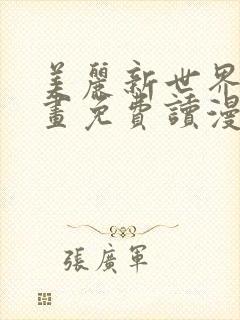 美麗新世界
畫免費讀漫
張廣軍